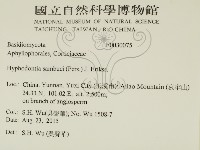 國立自然科學博物館
NATIONAL MUSEUM OF NATURAL SCIENCE
TAICHUNG, TAIWAN, R.O. CHINA
Basidiomycota F0030075
Aphyllophorales, Corticiaceae
Hyphodontia sambuci (Pers.) J. Erikss.
Loc: China, Yunnan, Yuxi City Ailao Mountain
24.31 N 101.02 E alt. 2,500m,
on branch of angiosperm
Col: S.H. Wu No. Wu 1508-7
Date: Aug 23, 2015
Det: S.H. Wu